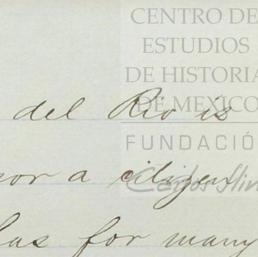 CENTRO DE
ESTUDIOS
DE HISTORIA
DE MÉXICO
del Rio is
FUNDACIÓ
nor a citizen
Carlos Slim
has for many